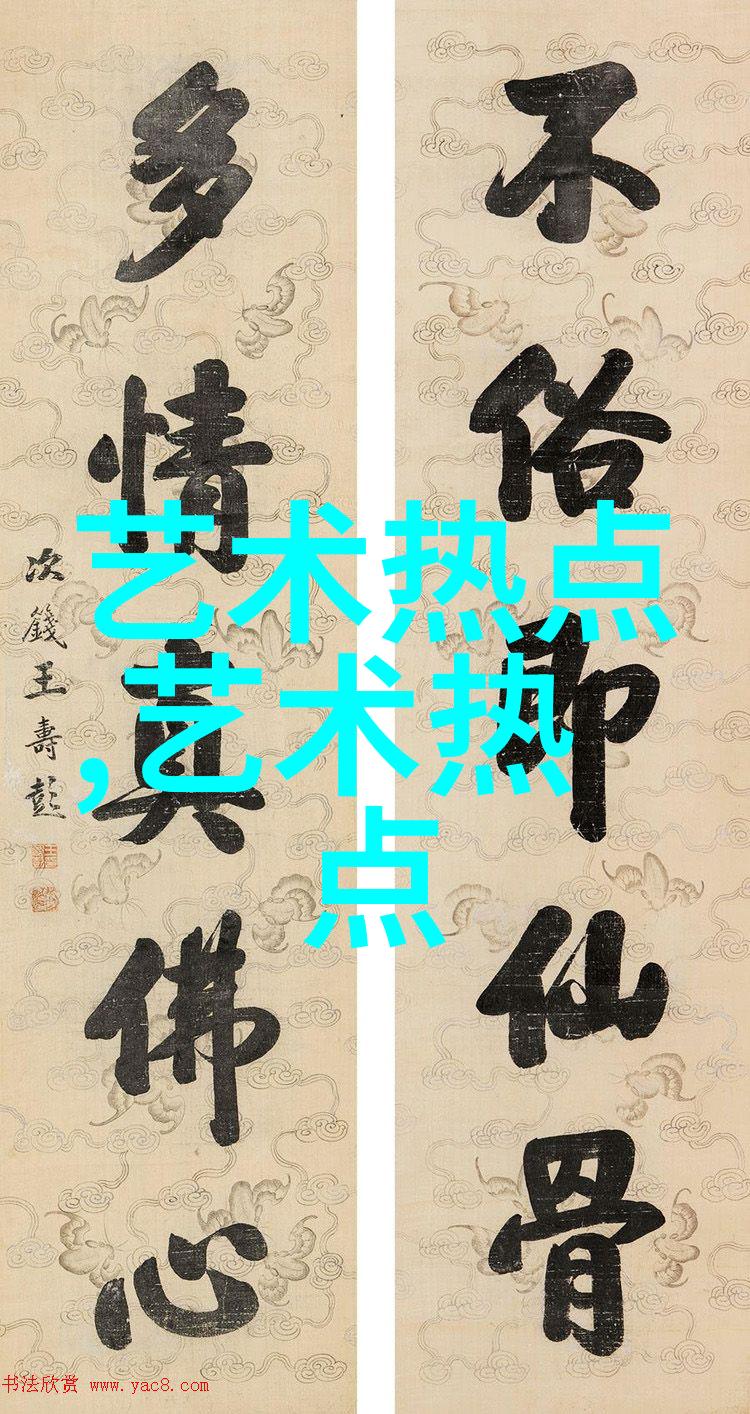 不俗即仙骨
多情真佛心
次籛王壽彭
艺术热点
,艺术热
点
书法欣赏 www.yac8.com